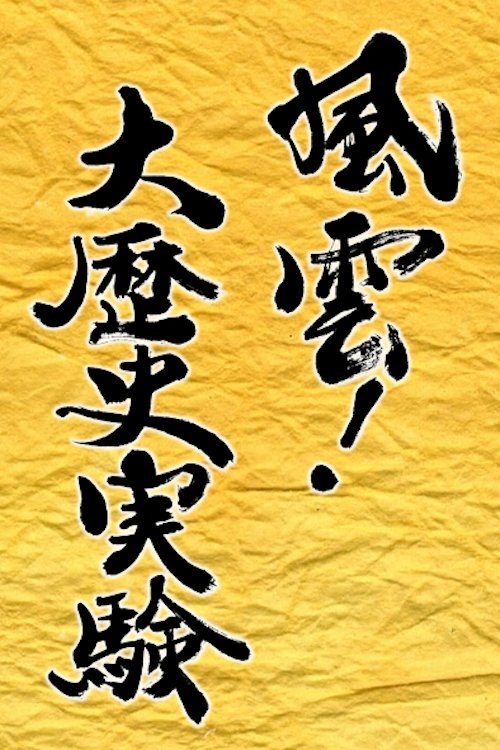 風雲!
大歴史実験